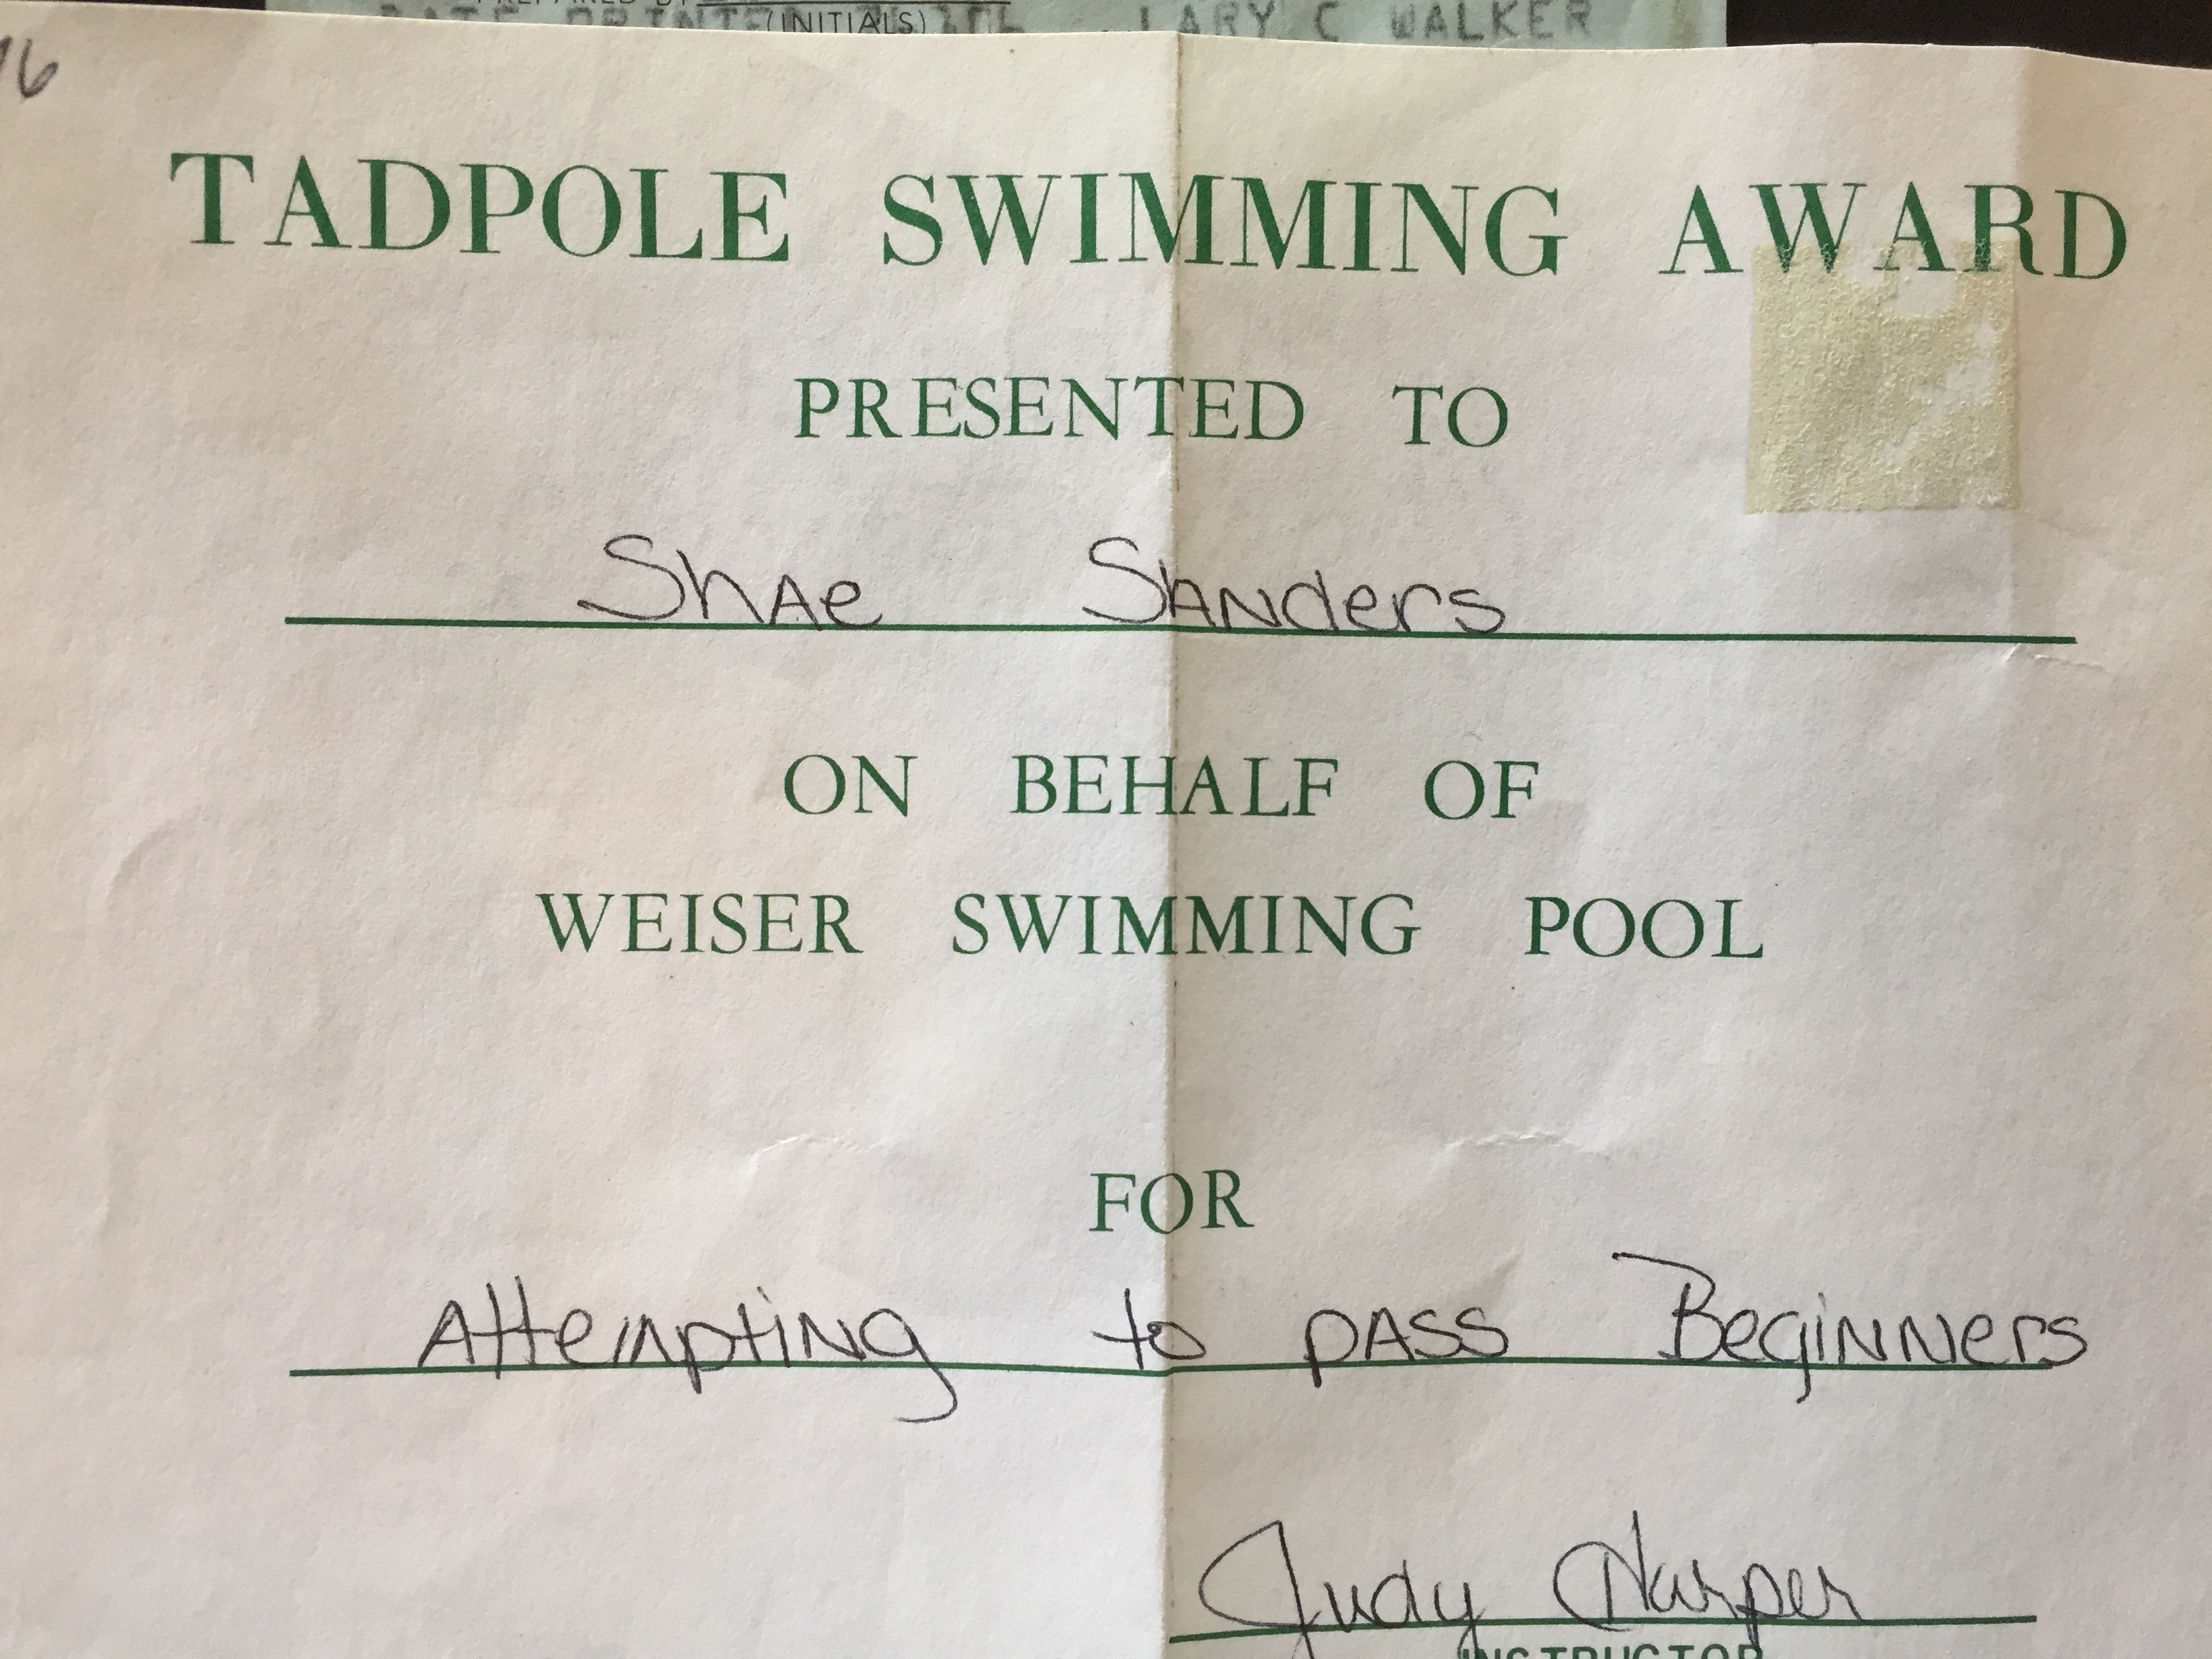 (INITIALS)
LARY C WALKER
16
TADPOLE SWIMMING AWARD
PRESENTED TO
Shae Sanders
ON BEHALF OF
WEISER SWIMMING POOL
FOR
Attempting to pass Beginners
Judy Harper
INSTRUCTOR